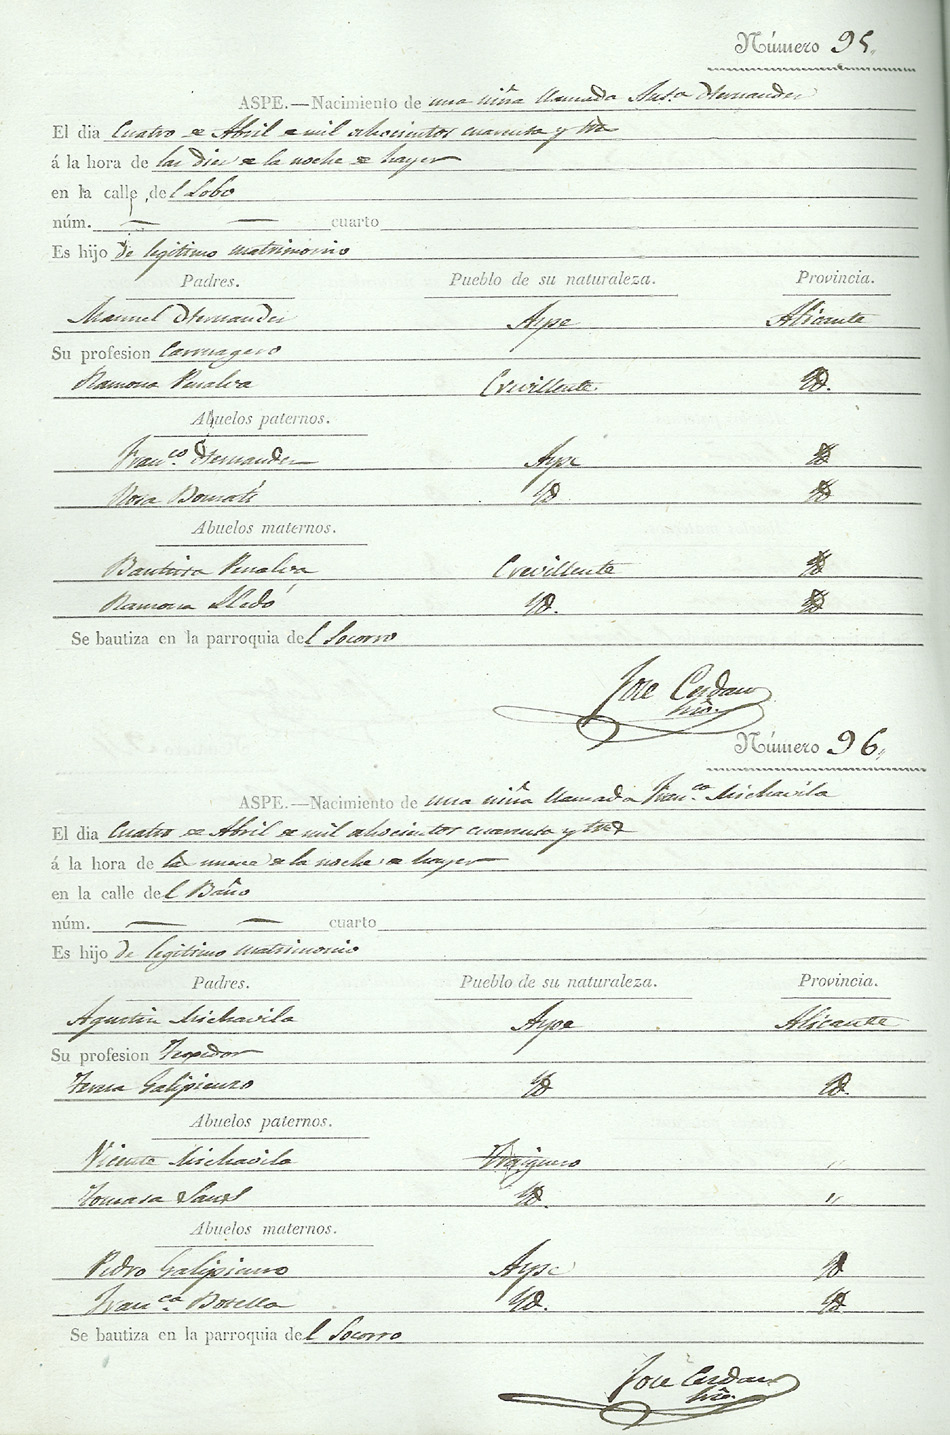 Número 95.
ASPE.—Nacimiento de una niña llamada Hernandez
El dia Cuatro de Abril de mil ochocientos cuarenta y tres
á la hora de las diez de la noche de hayer
en la calle del Lobo
núm. — — cuarto
Es hijo de legitimo matrimonio
Padres. Pueblo de su naturaleza. Provincia.
Manuel Hernandez Aspe Alicante
Su profesion
Ramona Penalva Crevillente Yd.
Abuelos paternos.
Franco. Hernandez Aspe Yd
Rosa Yd Yd
Abuelos maternos.
Bautista Penalva Crevillente Yd
Ramona Lledó Yd. Yd
Se bautiza en la parroquia del Socorro
Jose Cerdan
Número 96.
ASPE.—Nacimiento de una niña llamada Franca Michavila
El dia Cuatro de Abril de mil ochocientos cuarenta y tres
á la hora de la nueve de la noche de hayer
en la calle del Baño
núm. — — cuarto
Es hijo de legitimo matrimonio
Padres. Pueblo de su naturaleza. Provincia.
Agustin Michavila Aspe Alicante
Su profesion Texedor
Teresa Galipienzo Yd Yd.
Abuelos paternos.
Vicente Michavila "
Tomasa Yd. "
Abuelos maternos.
Pedro Galipienzo Aspe Yd
Franca Botella Yd. Yd
Se bautiza en la parroquia del Socorro
Jose Cerdan